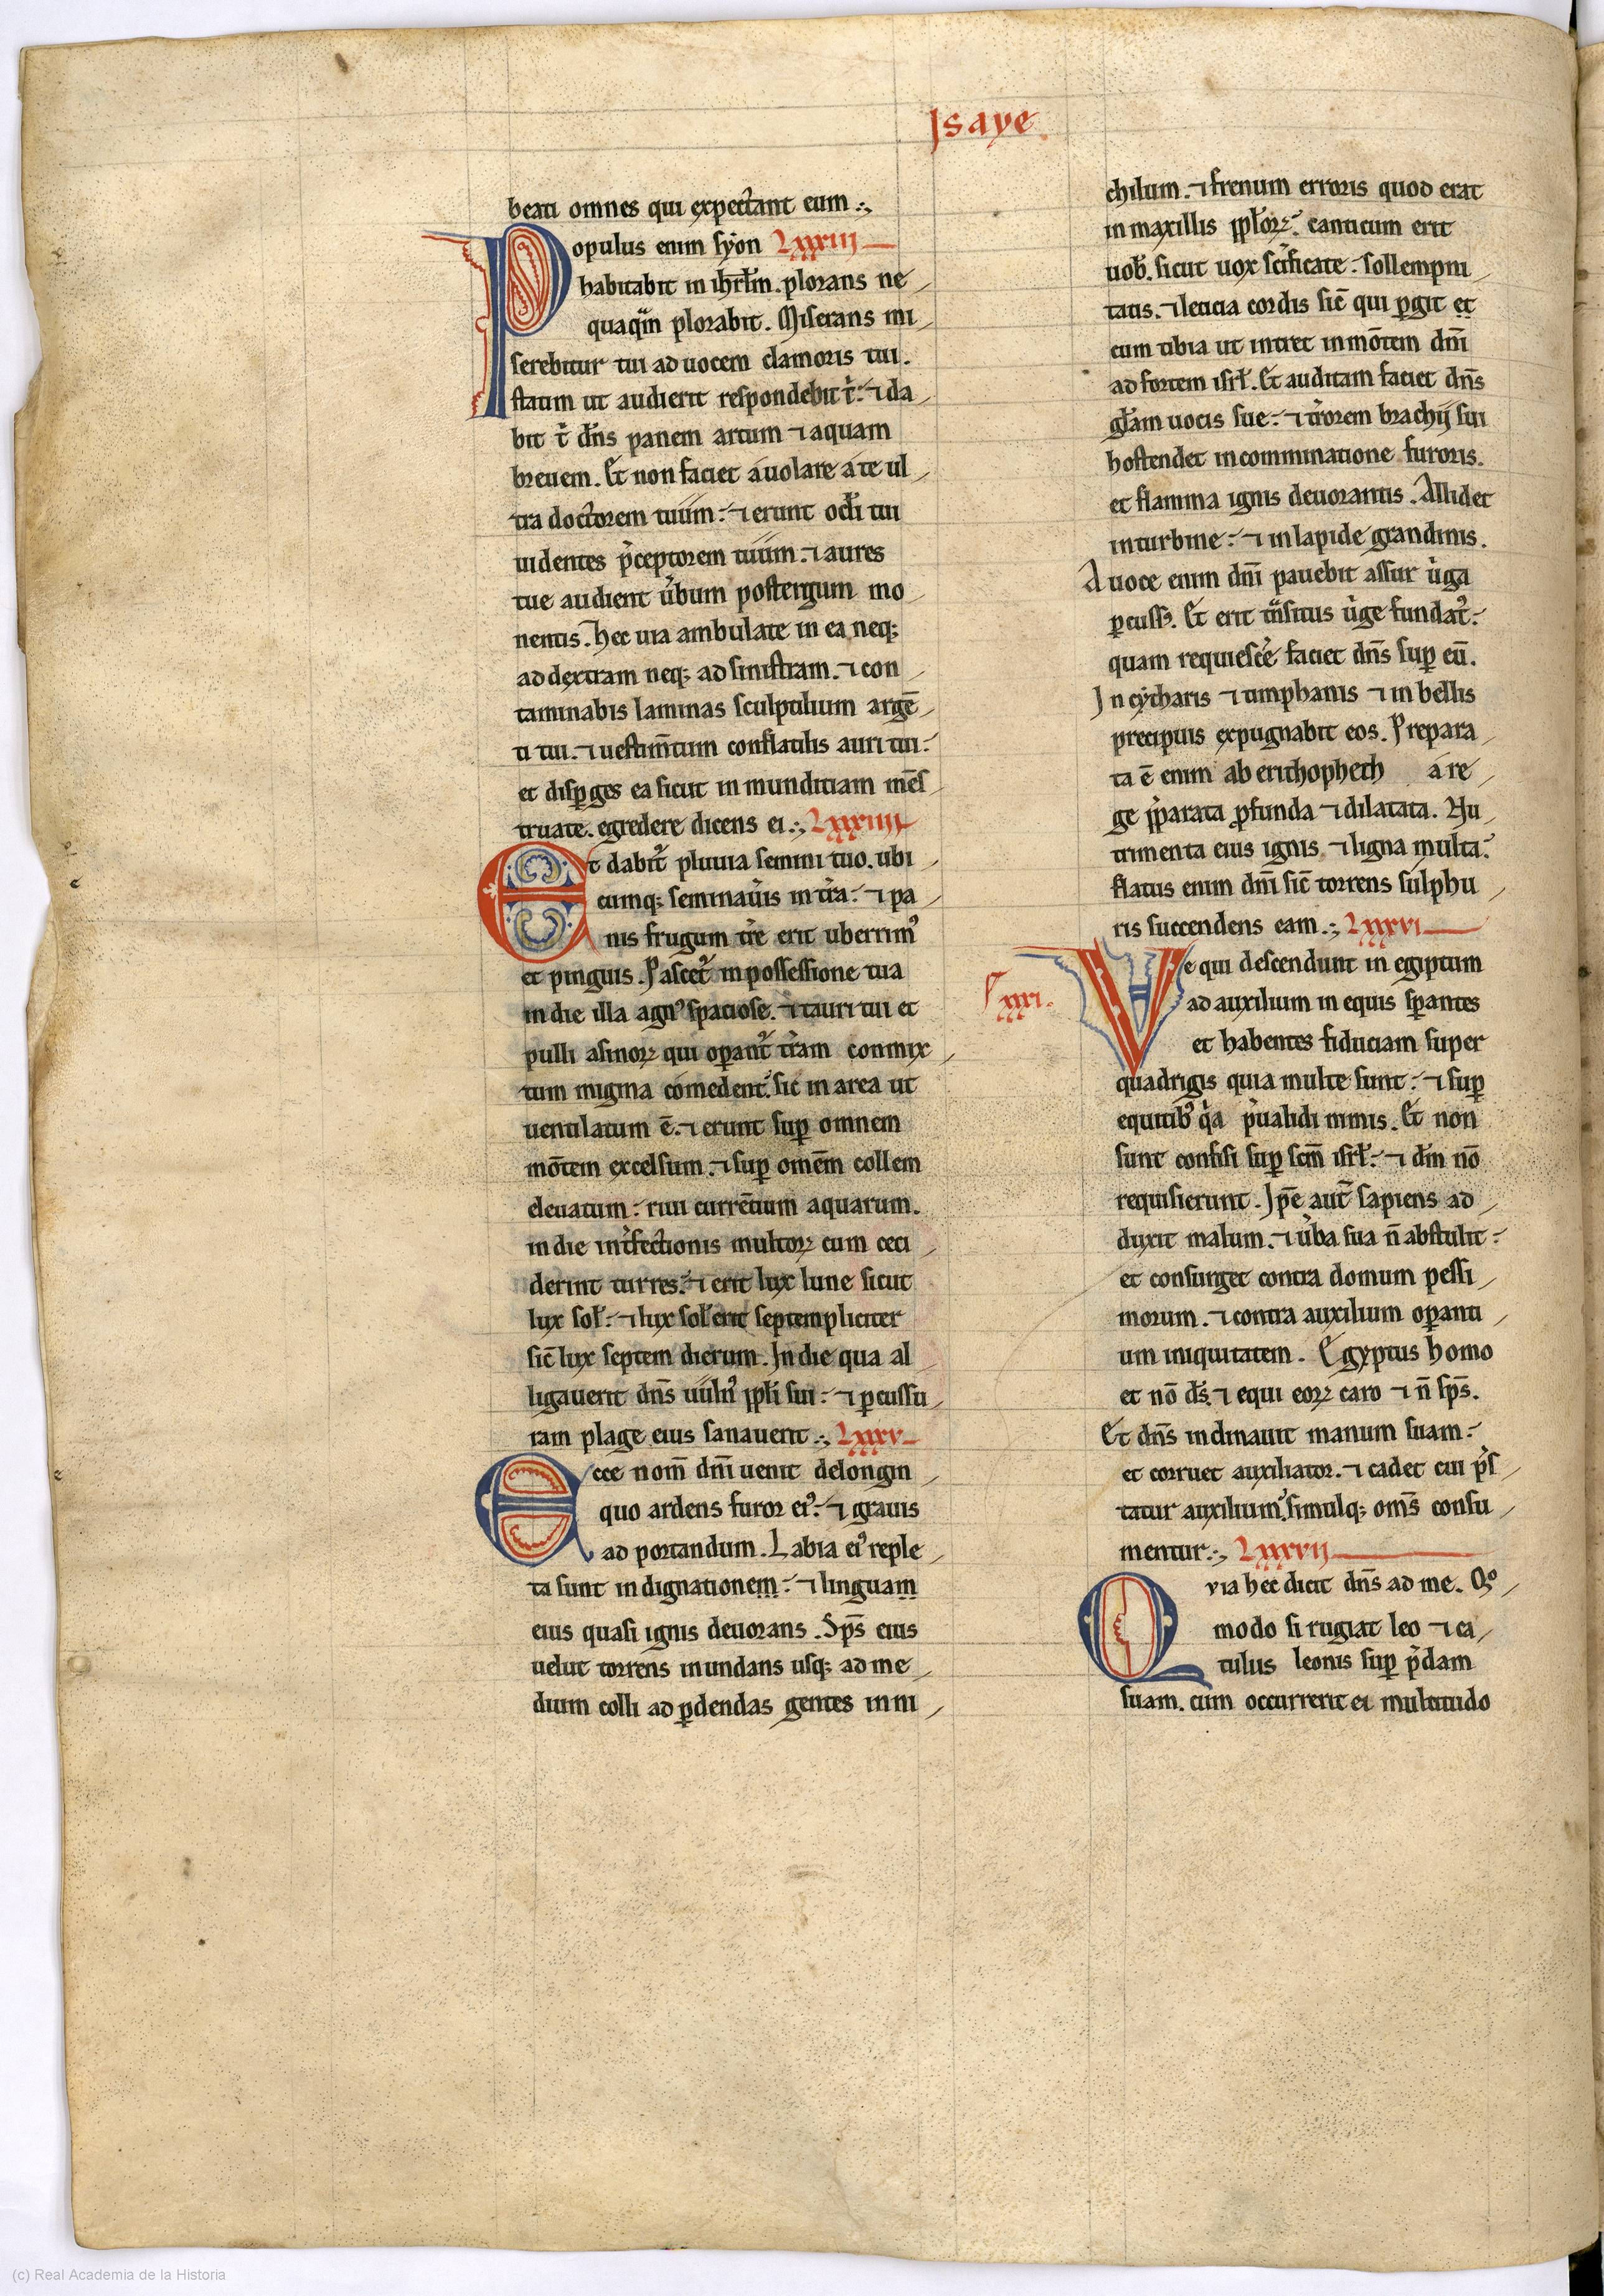 Isaye
beati omnes qui expectant eum.;,
Populus enim syon LXXIII
habitabit in ihrlm. plorans ne
quaqm plorabit. Miserans mi
serebitur tui ad uocem clamoris tui.
statim ut audierit respondebit t̾: ⁊ da
bit t̾ dn̄s panem artum ⁊ aquam
breuem. Et non faciet auolare a te ul
tra doctorem tuum: ⁊ erunt ocl̄i tui
uidentes p̾ceptorem tuum. ⁊ aures
tue audient u̾bum postergum mo
nentis. hec uia ambulate in ea neq;
ad dextram neq; ad sinistram. ⁊ con
taminabis laminas sculptilium argē
ti tui. ⁊ uestim̄tum conflatilis auri tui:
et disꝑges ea sicut inmunditiam mēs
truate. egredere dicens ei.;, LXXIIII
Et dabit᷑ pluuia semini tuo. ubi
cumq; seminau̾is in t̾ra: ⁊ pa
nis frugum t̾re erit uberrimꝰ
et pinguis. Pascet᷑ in possessione tua
in die illa agnꝰ spaciose. ⁊ tauri tui et
pulli asinoꝝ qui oꝑant᷑ t̾ram conmix
tum migma comedent. sic̄ in area ut
uentilatum ē. ⁊ erunt suꝑ omnem
mōtem excelsum. ⁊ suꝑ omēm collem
eleuatum: riui currētium aquarum.
in die int̾fectionis multoꝝ cum ceci
derint turres. ⁊ erit lux lune sicut
lux sol̄: ⁊ lux sol̄ erit septempliciter
sic̄ lux septem dierum. In die qua al
ligauerit dn̄s uulnꝰ ppl̄i sui: ⁊ ꝑcussu
ram plage eius sanauerit.;, LXXV
Ecce nom̄ dn̄i uenit delongin
quo ardens furor eiꝰ: ⁊ grauis
ad portandum. Labia eiꝰ reple
ta sunt indignationem: ⁊ linguam
eius quasi ignis deuorans. Sp̄s eius
uelut torrens inundans usq; ad me
dium colli ad ꝑdendas gentes in ni
chilum. ⁊ frenum erroris quod erat
in maxillis ppl̄oꝝ. canticum erit
uob̄. sicut uox sc̄ificate: sollempni
tatis. ⁊ leticia cordis sic̄ qui ꝑgit et
cum tibia ut intret in mōtem dn̄i
ad fortem isrl̄. Et auditam faciet dn̄s
gl̄am uocis sue: ⁊ t̾rorem brachij sui
hostendet in comminatione furoris.
et flamma ignis deuorantis. Allidet
in turbine: ⁊ in lapide grandinis.
A uoce enim dn̄i pauebit assur u̾ga
ꝑcussꝰ. Et erit tnsitus u̾ge fundatꝰ:
quam requiescē faciet dn̄s suꝑ eū.
In cytharis ⁊ timphanis ⁊ in bellis
precipuis expugnabit eos. Prepara
ta ē enim ab erithopheth a re
ge p̾parata ꝓfunda ⁊ dilatata. Nu
trimenta eius ignis ⁊ ligna multa:
flatus enim dn̄i sic̄ torrens sulphu
ris succendens eam.;, LXXVI
xxxi.
Ve qui descendunt in egiptum
ad auxilium in equis sꝑantes
et habentes fiduciam super
quadrigis quia multe sunt: ⁊ suꝑ
equitibꝰ q̾a p̾ualidi nimis. Et non
sunt confisi suꝑ scm̄ isrl̄: ⁊ dm̄ nō
requisierunt. Ip̄e aut̄ sapiens ad
duxit malum. ⁊ u̾ba sua n̄ abstulit:
et consurget contra domum pessi
morum. ⁊ contra auxilium oꝑanti
um iniquitatem. Egyptus homo
et nō ds̄. ⁊ equi eoꝝ caro ⁊ n̄ sp̄s.
Et dn̄s inclinauit manum suam:
et corruet auxiliator. ⁊ cadet cui p̾s
tatur auxilium. simulq; oms̄ consu
mentur.;, LXXVII
Qvia hec dicit dn̄s ad me. Qo
modo si rugiat leo ⁊ ca
tulus leonis suꝑ p̾dam
suam. cum occurrerit ei multitudo
(c) Real Academia de la Historia